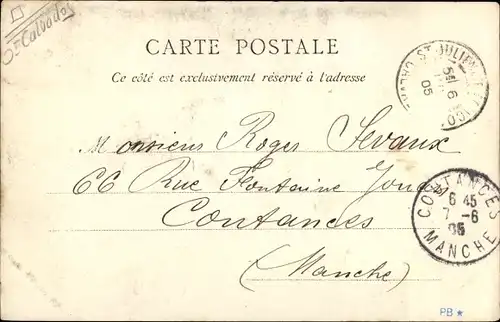 Dt Calvados
CARTE POSTALE
Ce côté est exclusivement réservé à l'adresse
ST JULIEN
6
05
Monsieur Roger Sevaux
66 Rue Fontaine
Coutances
(Manche)
COUTANCES
6 45
7 -6
05
MANCHE
PB